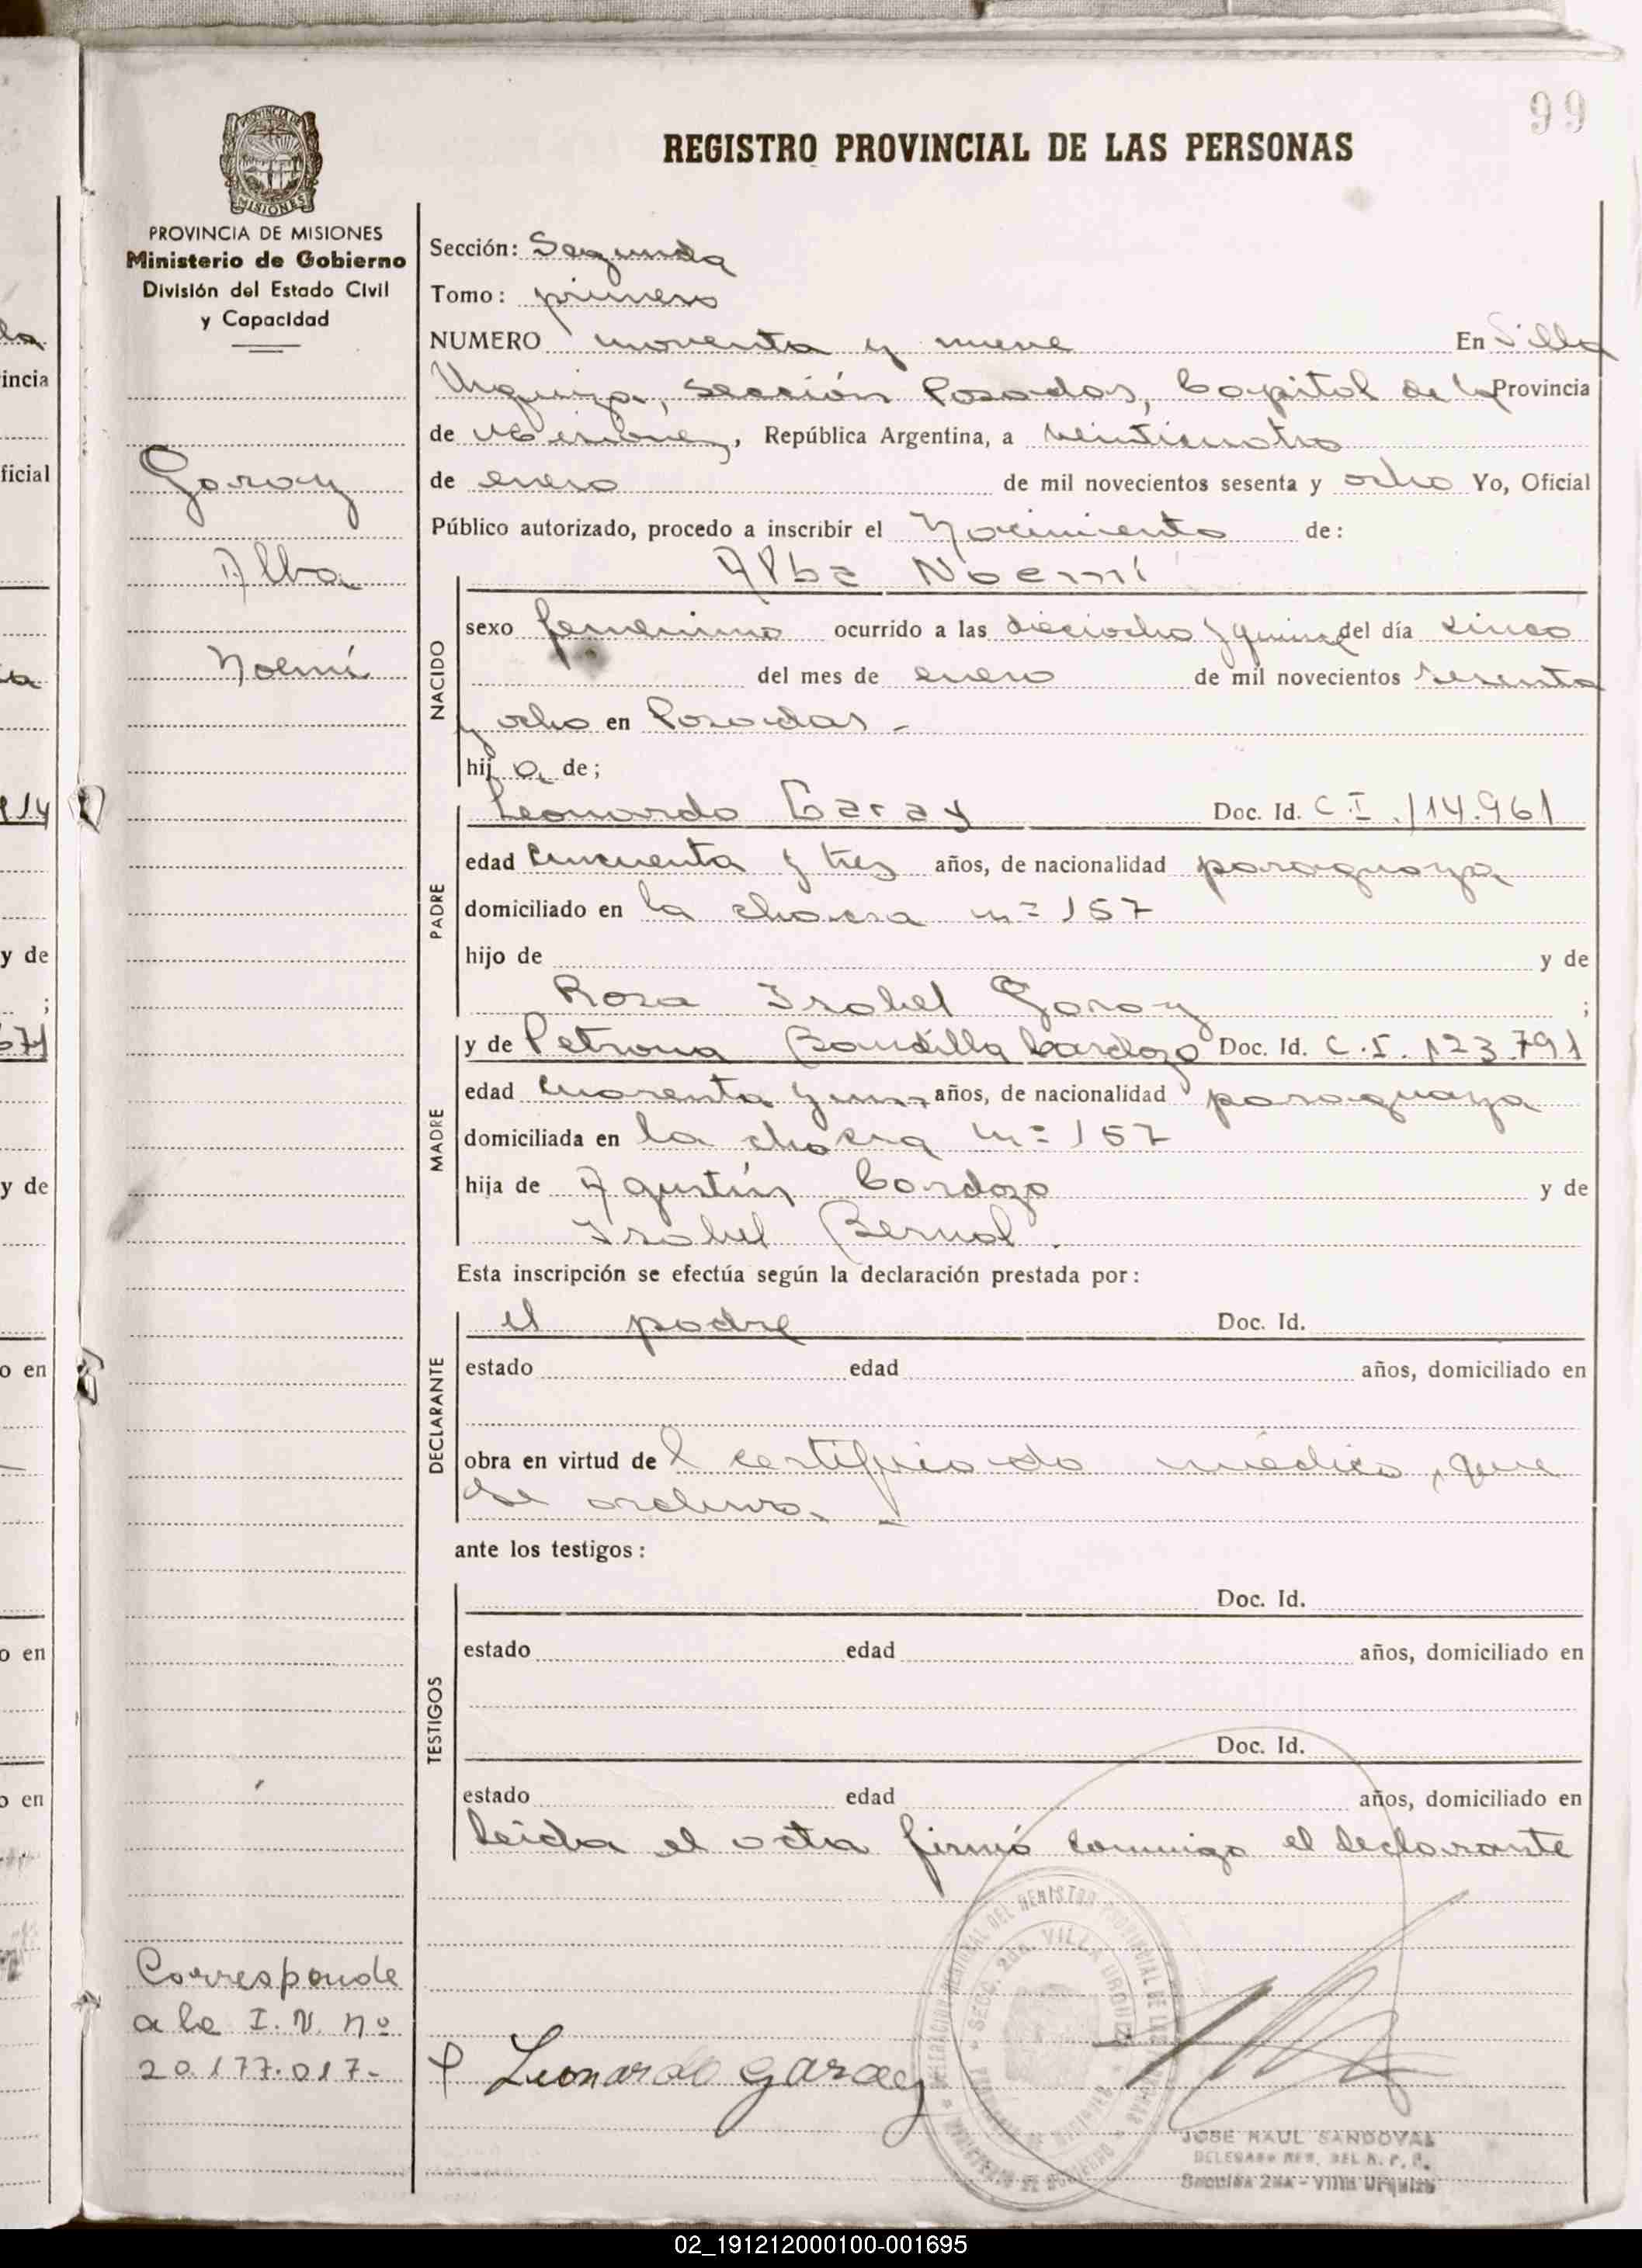 99
PROVINCIA DE
MISIONES
REGISTRO PROVINCIAL DE LAS PERSONAS
PROVINCIA DE MISIONES
Ministerio de Gobierno
División del Estado Civil
y Capacidad
Garay
Alba
Noemí
Corresponde
a la I.N. nº
20.177.017-
Sección: Segunda
Tomo: primero
NUMERO noventa y nueve En Villa
Urquiza, sección Posadas, Capital de la Provincia
de Misiones, República Argentina, a veinticuatro
de enero de mil novecientos sesenta y ocho Yo, Oficial
Público autorizado, procedo a inscribir el Nacimiento de:
Alba Noemí
NACIDO
sexo femenino ocurrido a las dieciocho y quince del día cinco
del mes de enero de mil novecientos sesenta
y ocho en Posadas -
hij a de;
PADRE
Leonardo Garay Doc. Id. C.I. 114.961
edad cincuenta y tres años, de nacionalidad paraguaya
domiciliado en la chacra nº 157
hijo de y de
Rosa Isabel Garay ;
MADRE
y de Petrona Cardozo Doc. Id. C.I. 123.791
edad cuarenta y un años, de nacionalidad paraguaya
domiciliada en la chacra nº 157
hija de Agustín Cardozo y de
Isabel Bernal.
Esta inscripción se efectúa según la declaración prestada por:
DECLARANTE
el padre Doc. Id.
estado edad años, domiciliado en
obra en virtud del certificado médico, que
se archiva. -
ante los testigos:
TESTIGOS
Doc. Id.
estado edad años, domiciliado en
Doc. Id.
estado edad años, domiciliado en
Leída el acta firmó conmigo el declarante
Leonardo Garay
SECC. 2da. VILLA URQUIZA
JOSE RAUL SANDOVAL
DELEGADO
Sección 2da - Villa Urquiza
la
incia
ficial
y de
;
671
y de
o en
o en
o en
02_191212000100-001695